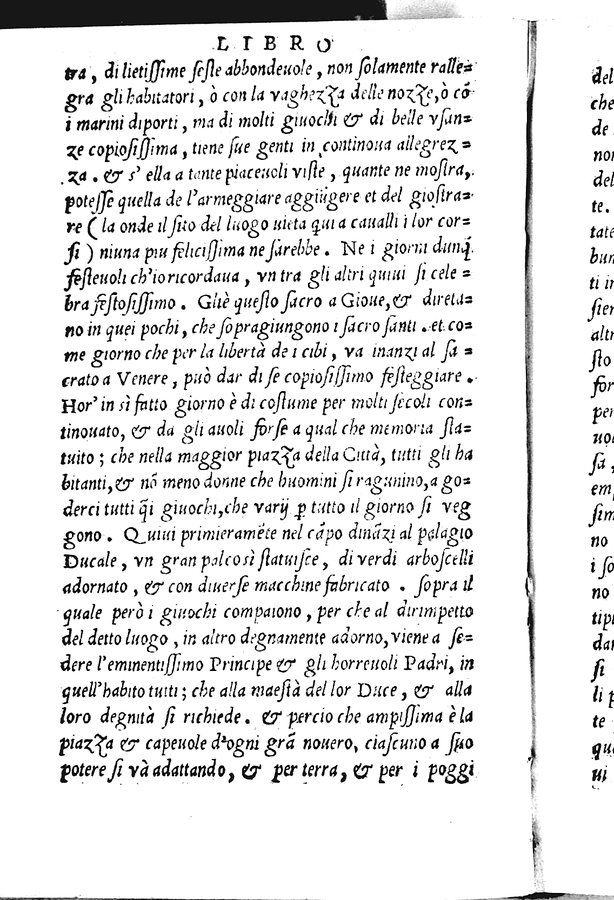 LIBRO
tra, di lietiſſime feſte abbondeuole, non ſolamente ralle=
gra gli habitatori, ò con la vaghezza delle nozze, ò cō
i marini diporti, ma di molti giuochi & di belle vſan=
ze copioſiſſima, tiene ſue genti in continoua allegrez=
za. & s' ella a tante piaceuoli viſte, quante ne moſtra,
poteſſe quella de l'armeggiare aggiūgere et del gioſtra=
re (la onde il ſito del luogo uieta qui a caualli i lor cor=
ſi) niuna piu feliciſſima ne ſarebbe. Ne i giorni dunq́
feſteuoli ch'io ricordaua, vn tra gli altri quiui ſi cele=
bra feſtoſiſſimo. Gliè queſto ſacro a Gioue, & direta=
no in quei pochi, che ſopragiungono i ſacro ſanti. et co=
me giorno che per la libertà de i cibi, va inanzi al ſa=
crato a Venere, può dar di ſe copioſiſſimo feſteggiare.
Hor' in sì fatto giorno è di coſtume per molti ſecoli con=
tinouato, & da gli auoli forſe a qual che memoria ſta=
tuito; che nella maggior piazza della Città, tutti gli ha
bitanti, & nō meno donne che huomini ſi ragunino, a go=
derci tutti q̄i giuochi, che varij ꝑ tutto il giorno ſi veg
gono. Quiui primieramēte nel cāpo dināzi al palagio
Ducale, vn gran palco sì ſtatuiſce, di verdi arboſcelli
adornato, & con diuerſe macchine fabricato. ſopra il
quale però i giuochi compaiono, per che al dirimpetto
del detto luogo, in altro degnamente adorno, viene a ſe=
dere l'eminentiſſimo Principe & gli horreuoli Padri, in
quell'habito tutti; che alla maeſtà del lor Duce, & alla
loro degnità ſi richiede. & percio che ampiſſima è la
piazza & capeuole d'ogni grā nouero, ciaſcuno a ſuo
potere ſi và adattando, & per terra, & per i poggi
del
che
de
non
del
te.
tate
bun
ti in
ſier
altr
ſto
for
per
uol
ſà,
emp
ſim
no
i ſo
no
tipi
dan
ſi
li p
te
qua
ui